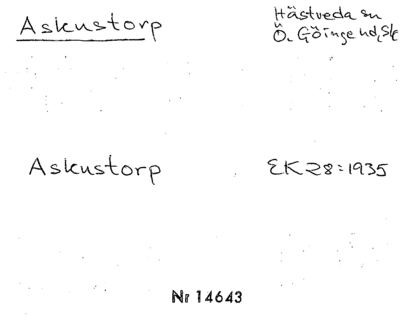 Askustorp
Hästveda sn
Ö. Göinge hd, Sk
Askustorp
EK 28:1935
Nr 14643